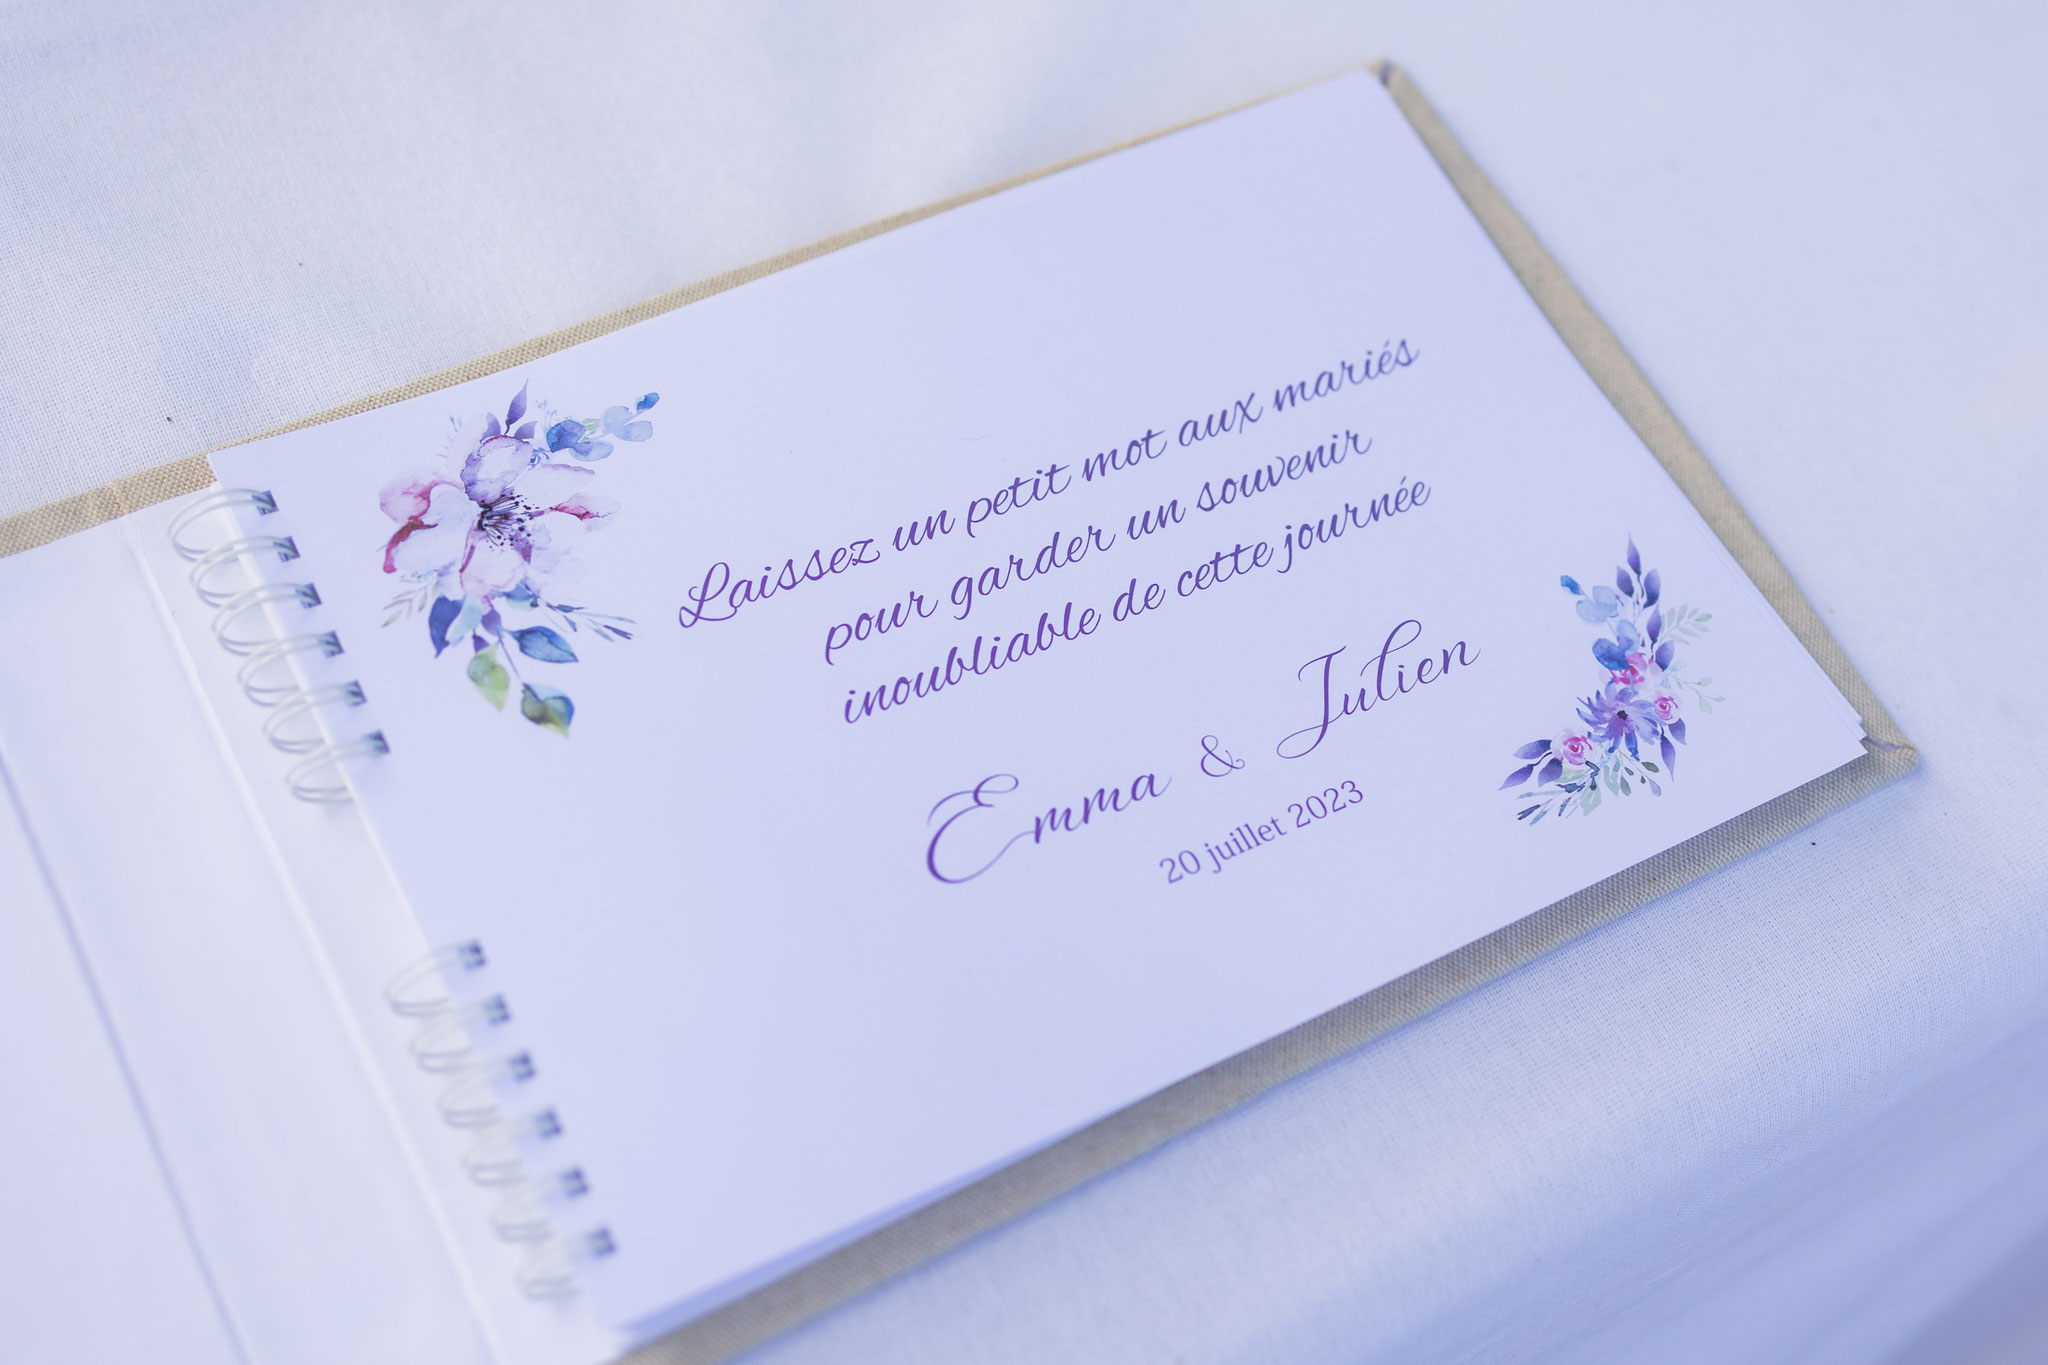 Laissez un petit mot aux mariés
pour garder un souvenir
inoubliable de cette journée
Emma & Julien
20 juillet 2023